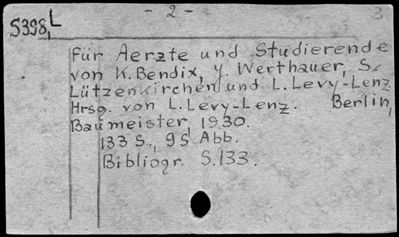 S398,L - 2 - 3
Für Aerzte und Studierende
von K.Bendix, Y. Werthauer, S.
Lützenkirchen und L.Levy-Lenz
Hrsg. von L.Levy-Lenz. Berlin,
Baumeister, 1930.
133 S., 95 Abb.
Bibliogr. S.133.